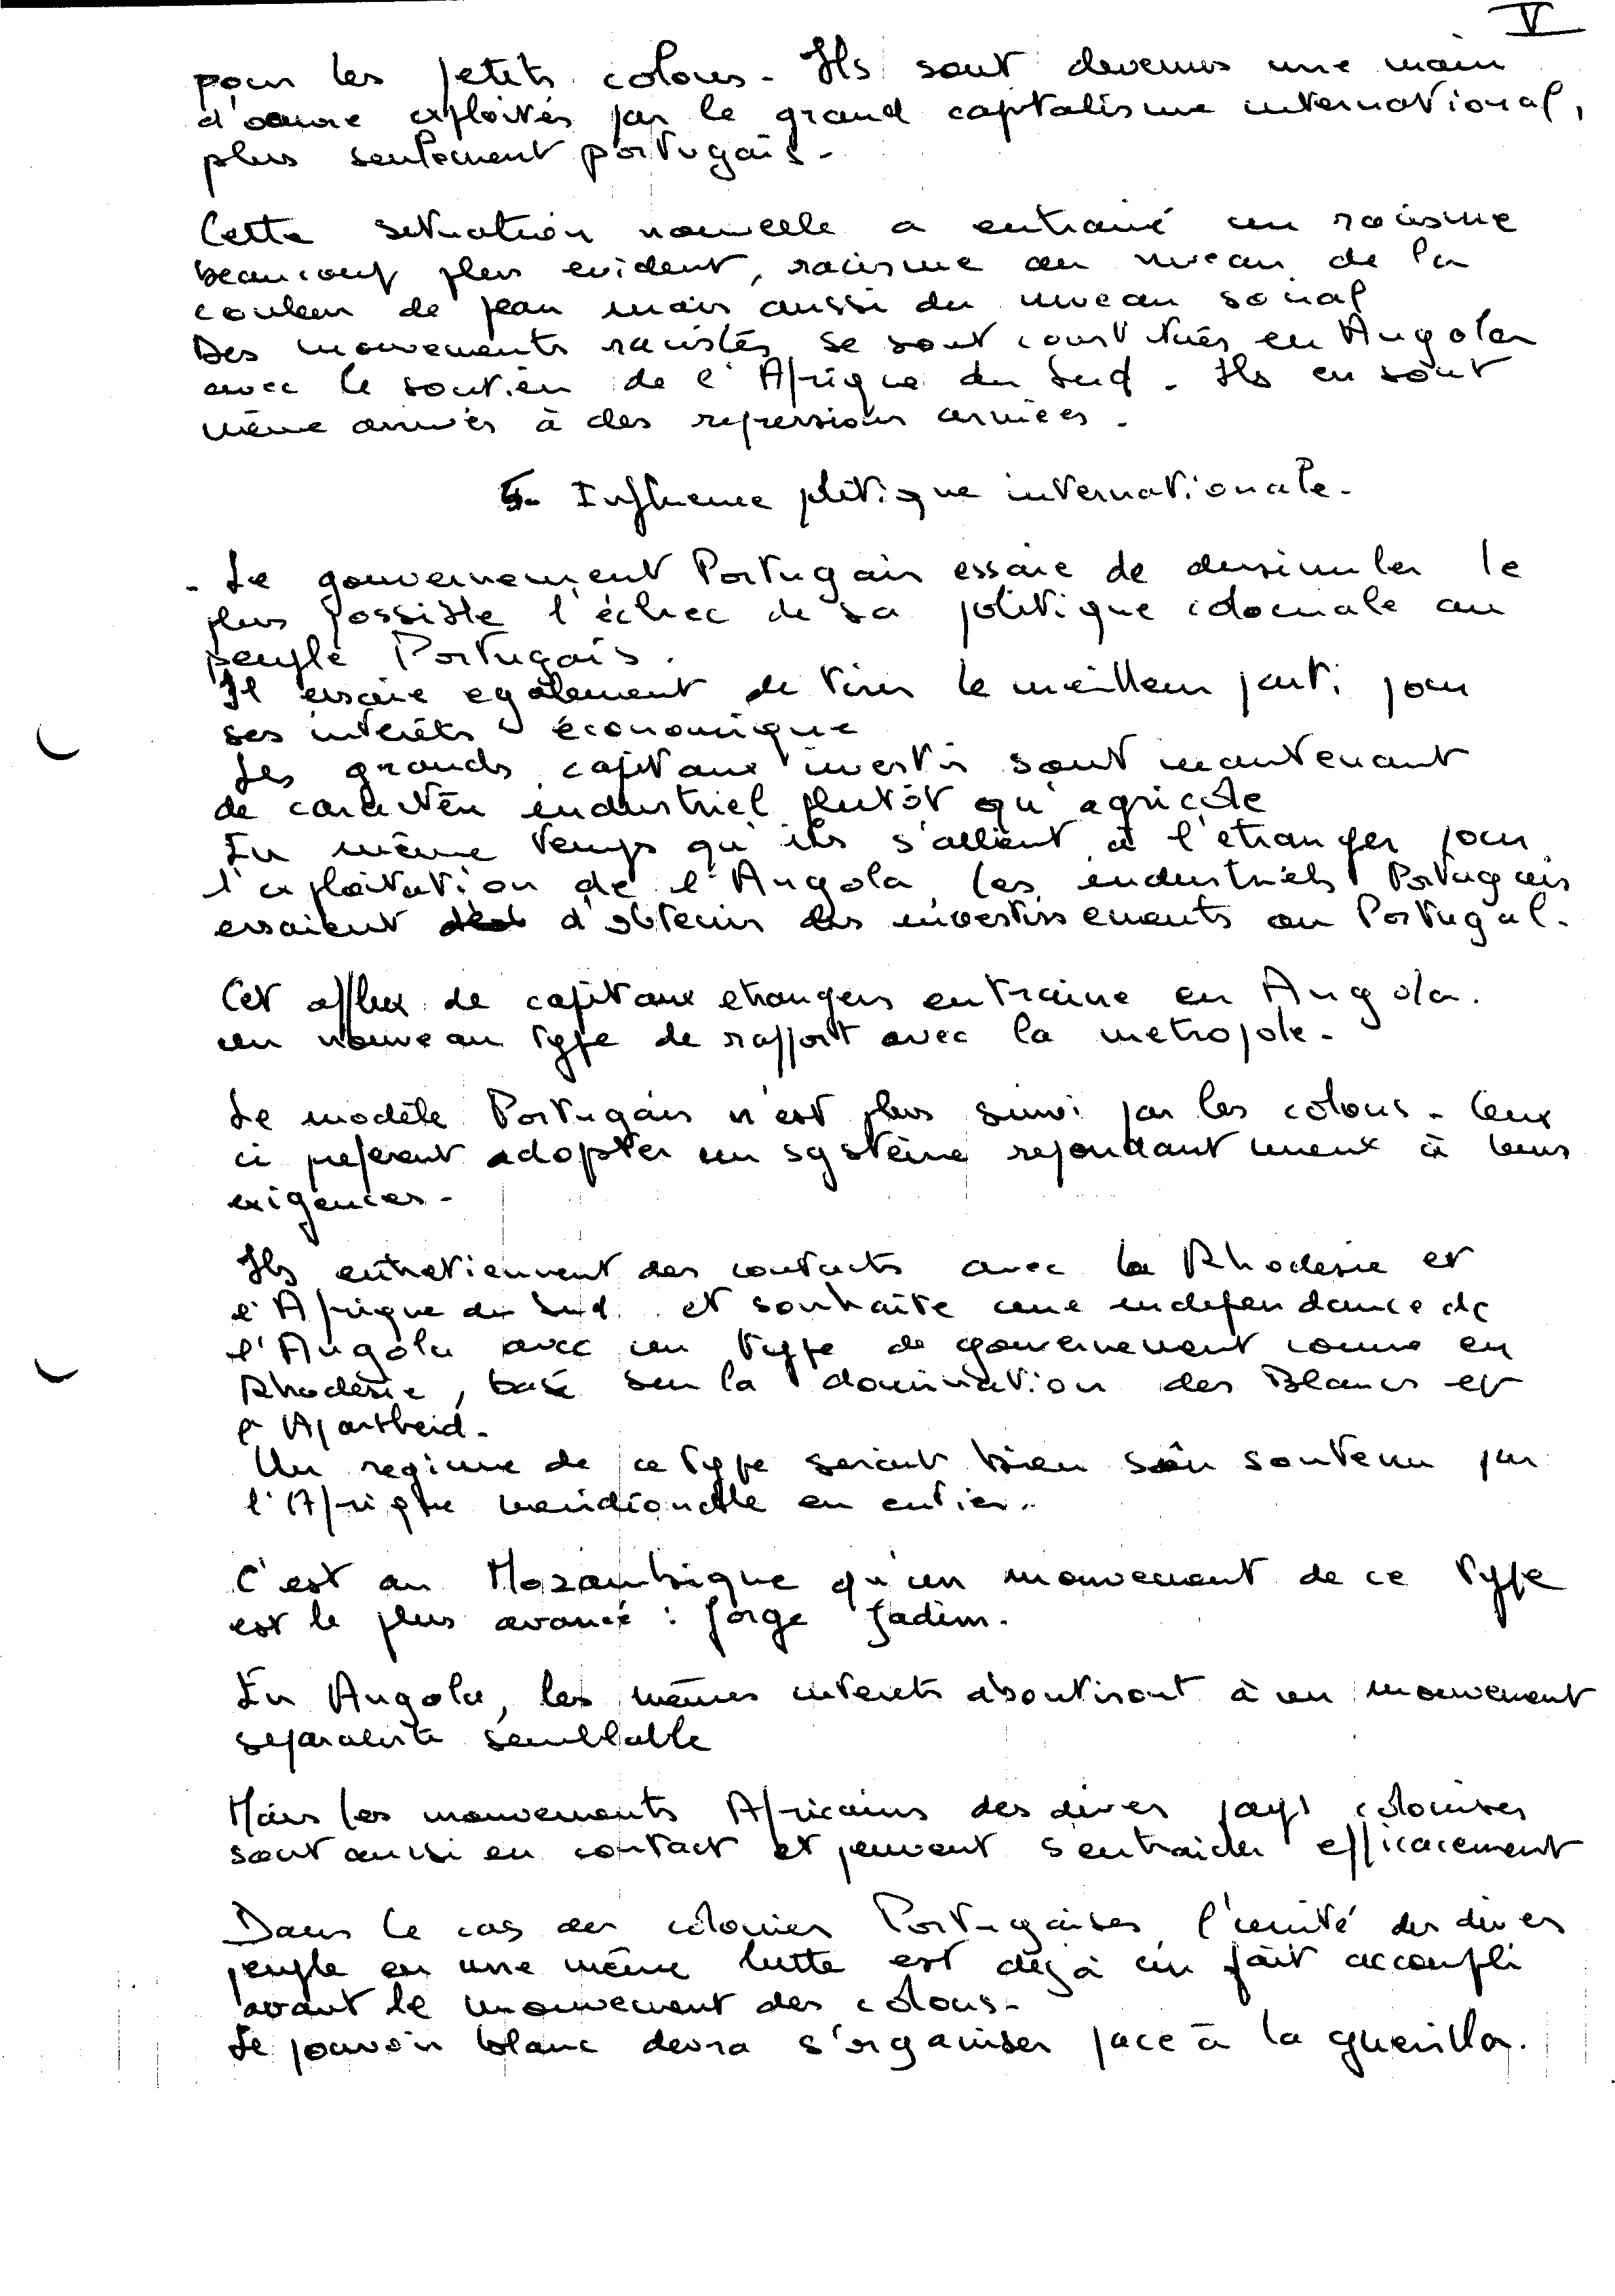 V
pour les petits colons - Ils sont devenus une main
d'oeuvre exploités par le grand capitalisme international,
plus seulement portugais -
Cette situation nouvelle a entrainé un racisme
beaucoup plus evident, racisme au niveau de la
couleur de peau mais aussi du niveau social
Des mouvements racistes se sont constitués en Angola
avec le soutien de l'Afrique du Sud - Ils en sont
même arrivés à des repressions armées -
5- Influence plitique internationale -
- Le gouvernement Portugais essaie de dissimuler le
plus possible l'échec de sa politique coloniale au
peuple Portugais.
Il essaie egalement de tirer le meilleur parti pour
ses intérêts économique
Les grands capitaux investis sont maintenant
de caractère industriel plutôt qu'agricole
En même temps qu'ils s'allient à l'etranger pour
l'exploitation de l'Angola les industriels Portugais
essaient d'obtenir des investissements au Portugal.
Cet afflux de capitaux etrangers entraine en Angola.
un nouveau type de rapport avec la metropole -
Le modèle Portugais n'est plus suivi par les colons - Ceux
ci preferent adopter un système repondant mieux à leurs
exigences -
Ils entretiennent des contacts avec la Rhodesie et
l'Afrique du Sud et souhaite une independance de
l'Angola avec un type de gouvernement comme en
Rhodésie, basé sur la domination des Blancs et
l'Apartheid -
Un regime de ce type serait bien sûr soutenu par
l'Afrique meridionale en entier..
C'est au Mozambique qu'un mouvement de ce type
est le plus avancé : Jorge Jadim.
En Angola, les mêmes interets aboutiront à un mouvement
separatiste semblable
Mais les mouvements Africains des divers pays colonises
sont aussi en contact et peuvent s'entraider efficacement
Dans le cas des colonies Portugaises l'unité des divers
peuple en une même lutte est déjà un fait accompli
avant le mouvement des colons -
Le pouvoir blanc devra s'organiser face à la guerilla.